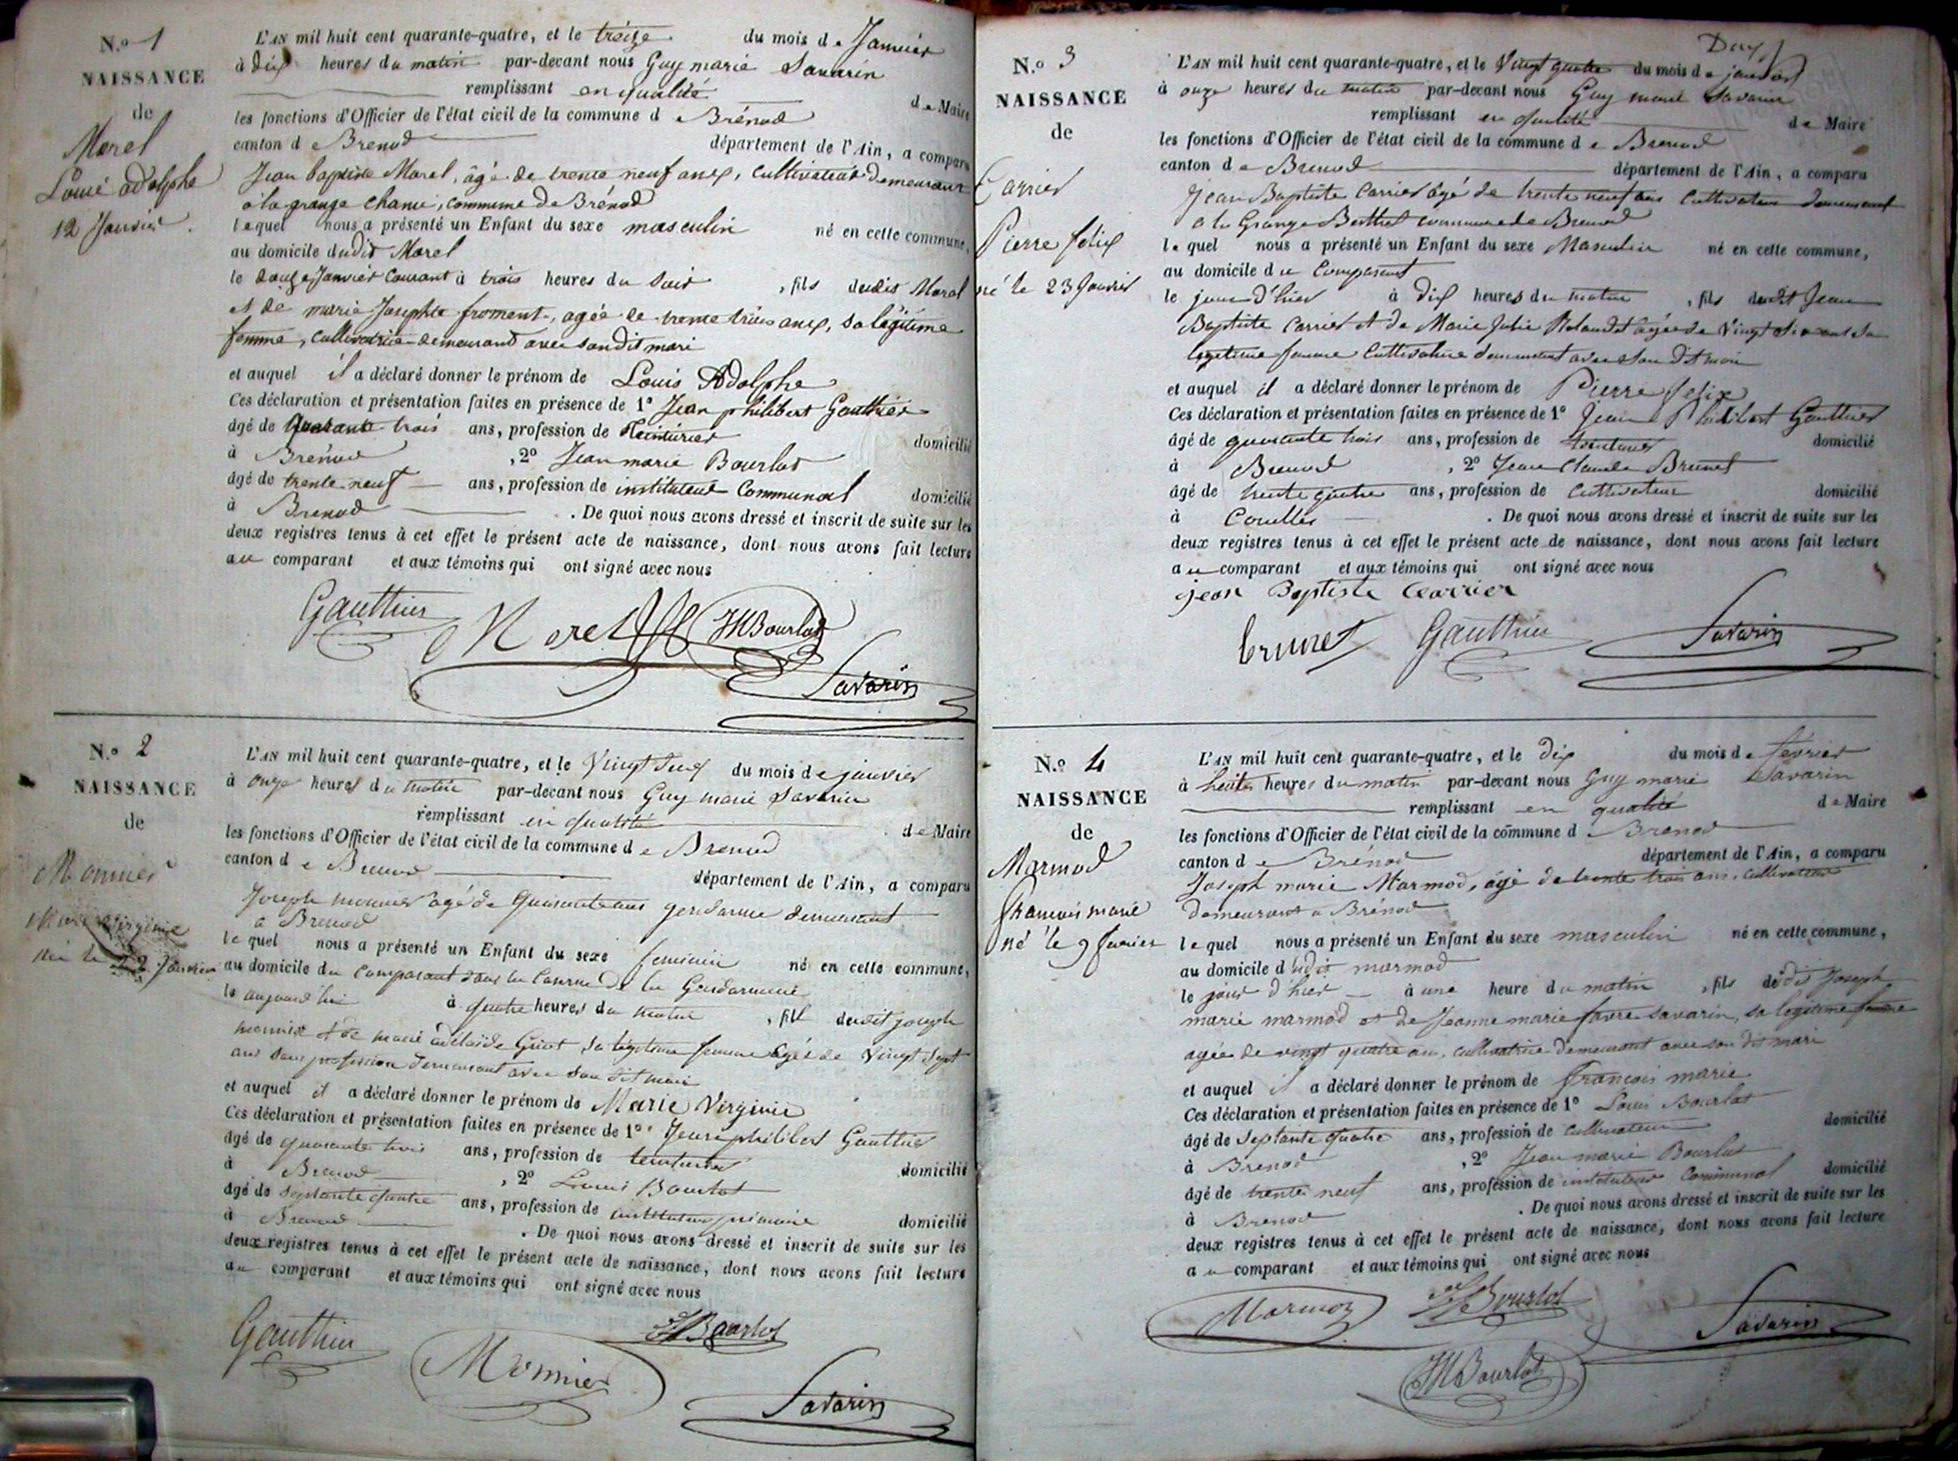 N.º 1
NAISSANCE
de
Morel
Louis adolphe
12 Janvier.
L'AN mil huit cent quarante-quatre, et le treize du mois de Janvier
à dix heures du matin par-devant nous Guy marie Savarin
remplissant en qualité de Maire
les fonctions d'Officier de l'état civil de la commune d e Brénod
canton d e Brenod département de l'Ain, a comparu
Jean baptiste Morel, âgé de trente neuf ans, cultivateur demeurant
à la grange chanié, commune de Brénod
lequel nous a présenté un Enfant du sexe masculin né en cette commune,
au domicile dudit Morel
le douze Janvier courant à trois heures du soir, fils dudit Morel
et de marie Josephte froment, agée de trente trois ans, sa légitime
femme, cultivatrice demeurant avec son dit mari
et auquel il a déclaré donner le prénom de Louis Adolphe
Ces déclaration et présentation faites en présence de 1º Jean philibert Gauthier
âgé de quarante trois ans, profession de teinturier domicilié
à Brénod, 2º Jean marie Bourlot
âgé de trente-neuf ans, profession de instituteur communal domicilié
à Brenod. De quoi nous avons dressé et inscrit de suite sur les
deux registres tenus à cet effet le présent acte de naissance, dont nous avons fait lecture
au comparant et aux témoins qui ont signé avec nous
Gauthier Morel JMBourlot
Savarin
N.º 2
NAISSANCE
de
Monnier
Marie virginie
née le 22 Janvier
L'AN mil huit cent quarante-quatre, et le Vingt deux du mois de janvier
à onze heures du matin par-devant nous Guy marie Savarin
remplissant en qualité de Maire
les fonctions d'Officier de l'état civil de la commune d e Brenod
canton d e Brenod département de l'Ain, a comparu
Joseph monnier agé de quarante ans gendarme demeurant
a Brenod
lequel nous a présenté un Enfant du sexe feminin né en cette commune,
au domicile du comparant dans la Caserne de la Gendarmerie
le aujourd'hui à quatre heures du matin, fill dudit joseph
monnier et de marie adelaide Griot, sa légitime femme agée de Vingt sept
ans sans profession demeurant avec son dit mari
et auquel il a déclaré donner le prénom de Marie Virginie
Ces déclaration et présentation faites en présence de 1º Jean philibert Gauthier
âgé de quarante trois ans, profession de teinturier domicilié
à Brenod, 2º Louis Bourlot
âgé de septante quatre ans, profession de instituteur primaire domicilié
à Brenod. De quoi nous avons dressé et inscrit de suite sur les
deux registres tenus à cet effet le présent acte de naissance, dont nous avons fait lecture
au comparant et aux témoins qui ont signé avec nous
Gauthier Monnier Bourlot
Savarin
N.º 3
NAISSANCE
de
Carrier
Pierre félix
né le 23 Janvier
L'AN mil huit cent quarante-quatre, et le Vingt quatre du mois de janvier
à onze heures du matin par-devant nous Guy marie Savarin
remplissant en qualité de Maire
les fonctions d'Officier de l'état civil de la commune d e Brenod
canton d e Brenod département de l'Ain, a comparu
Jean Baptiste Carrier âgé de trente neuf ans Cultivateur demeurant
a la Grange Berthet commune de Brenod
lequel nous a présenté un Enfant du sexe Masculin né en cette commune,
au domicile du comparant
le jour d'hier à dix heures du matin, fils dudit Jean
Baptiste Carrier et de Marie Julie Rolandet agée de Vingt six ans sa
legitime femme Cultivatrice demeurant avec son dit mari
et auquel il a déclaré donner le prénom de Pierre felix
Ces déclaration et présentation faites en présence de 1º Jean Philibert Gauthier
âgé de quarante trois ans, profession de teinturier domicilié
à Brenod, 2º Jean Claude Brunet
âgé de trente quatre ans, profession de Cultivateur domicilié
à. De quoi nous avons dressé et inscrit de suite sur les
deux registres tenus à cet effet le présent acte de naissance, dont nous avons fait lecture
au comparant et aux témoins qui ont signé avec nous
jean Baptiste Carrier
brunet Gauthier Savarin
N.º 4
NAISSANCE
de
Marmod
francois marie
né le 9 fevrier
L'AN mil huit cent quarante-quatre, et le dix du mois de février
à huit heures du matin par-devant nous Guy marie Savarin
remplissant en qualité de Maire
les fonctions d'Officier de l'état civil de la commune d e Brenod
canton d e Brénod département de l'Ain, a comparu
Joseph marie Marmod, âgé de trente trois ans, cultivateur
demeurant à Brénod
lequel nous a présenté un Enfant du sexe masculin né en cette commune,
au domicile dudit marmod
le jour d'hier à une heure du matin, fils dudit Joseph
marie marmod et de Jeanne marie favre savarin, sa légitime femme
agée de vingt quatre ans, cultivatrice demeurant avec son dit mari
et auquel il a déclaré donner le prénom de francois marie
Ces déclaration et présentation faites en présence de 1º Louis Bourlot
âgé de septante quatre ans, profession de cultivateur domicilié
à Brenod, 2º Jean marie Bourlot
âgé de trente neuf ans, profession de instituteur communal domicilié
à Brenod. De quoi nous avons dressé et inscrit de suite sur les
deux registres tenus à cet effet le présent acte de naissance, dont nous avons fait lecture
au comparant et aux témoins qui ont signé avec nous
Marmoz Bourlot Savarin
JMBourlot